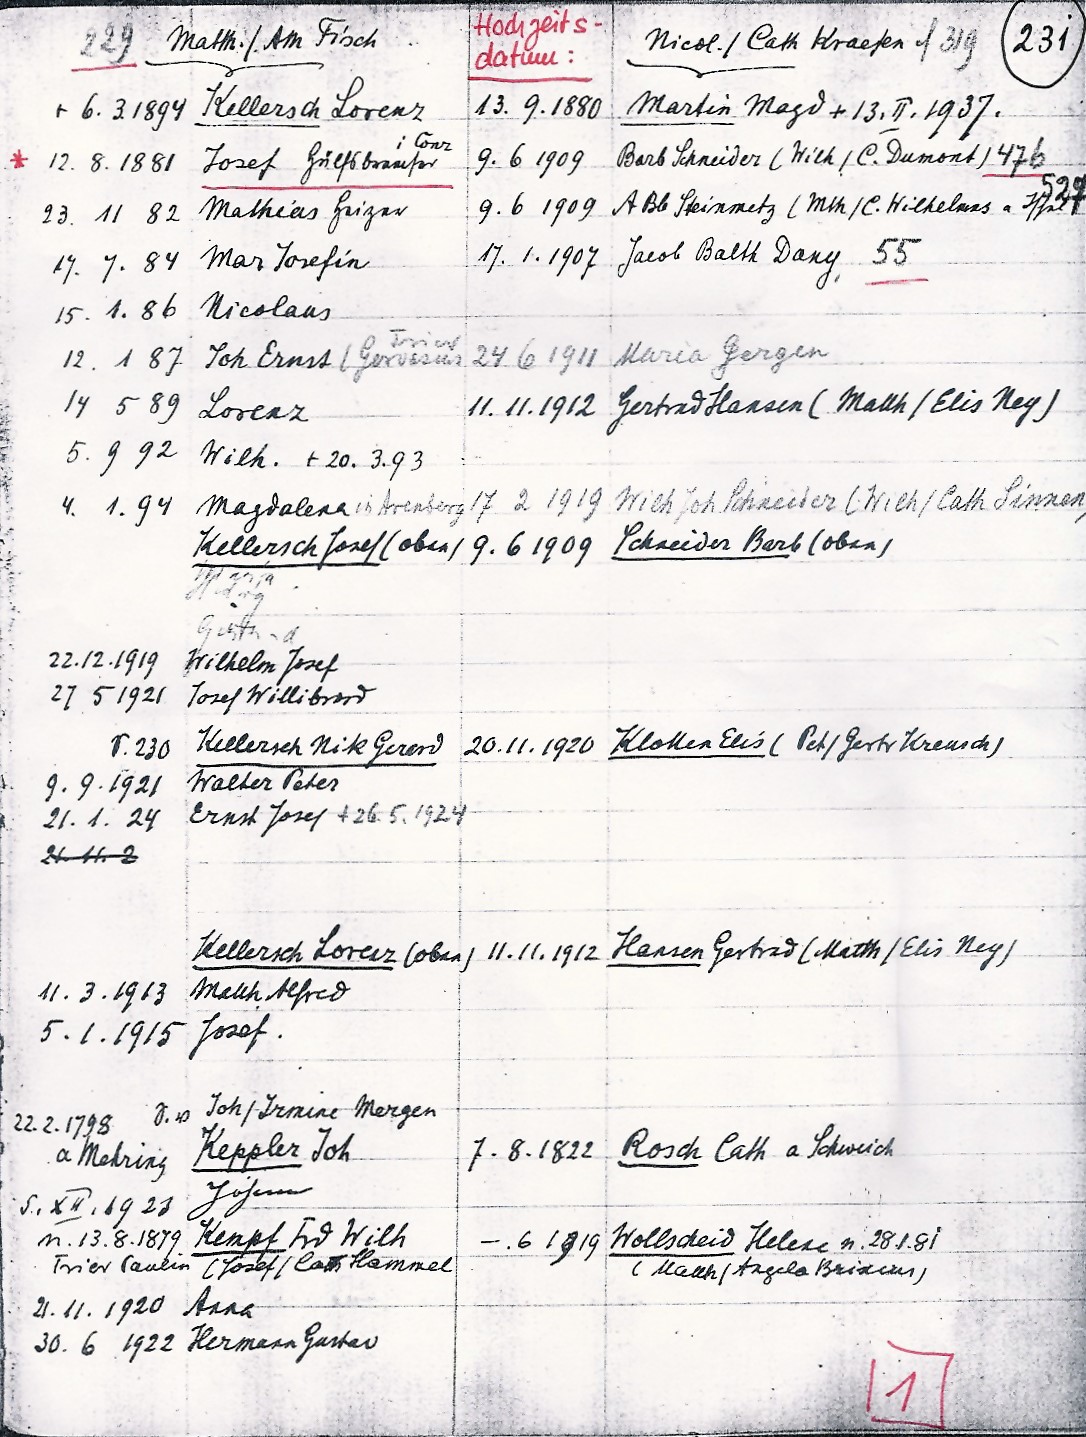 229 Matth./Am Fisch Hochzeits-datum: Nicol./Cath Kraefen / 319 231
+ 6. 3. 1894 Kellersch Lorenz 13. 9. 1880 Martin Magd + 13. II. 1937.
* 12. 8. 1881 Josef i Conz 9. 6 1909 Barb Schneider (Wilh/C. Dumont) 476
23. 11 82 Mathias Heizer 9. 6 1909 A Bb Steinmetz (Mth/C. Wilhelmus a 527
17. 7. 84 Mar Josefin 17. 1. 1907 Jacob Balth Dany, 55
15. 1. 86 Nicolaus
12. 1 87 Joh Ernst (Trier Gervasius 24 6 1911 Maria Gergen
14 5 89 Lorenz 11. 11. 1912 Gertrud Hansen (Matth/Elis Ney)
5. 9 92 Wilh. + 20. 3. 93
4. 1. 94 Magdalena in Arenberg 17 2 1919 Wilh Joh Schneider (Wilh/Cath Linnen)
Kellersch Josef (oben) 9. 6 1909 Schneider Barb (oben)
22. 12. 1919 Wilhelm Josef
27 5 1921 Josef Willibrord
v. 230 Kellersch Nik Gerard 20. 11. 1920 Klotten Elis (Pet/Gertr Kreusch)
9. 9. 1921 Walter Peter
21. 1. 24 Ernst Josef + 26. 5. 1924
21. 11. 2
Kellersch Lorenz (oben) 11. 11. 1912 Hansen Gertrud (Matth/Elis Ney)
11. 3. 1913 Matth. Alfred
5. 1. 1915 Josef.
22. 2. 1798 Joh/Irmine Mergen
a Mehring Keppler Joh 7. 8. 1822 Rosch Cath a Schweich
5. XII. 1923
n. 13. 8. 1879 Kempf Frd Wilh –. 6 1919 Wollscheid Helene n. 28. 1. 81
Trier Paulin (Josef/Cath Hammel (Matth/Angela Brixius)
21. 11. 1920 Anna
30. 6 1922 Hermann Gustav
1